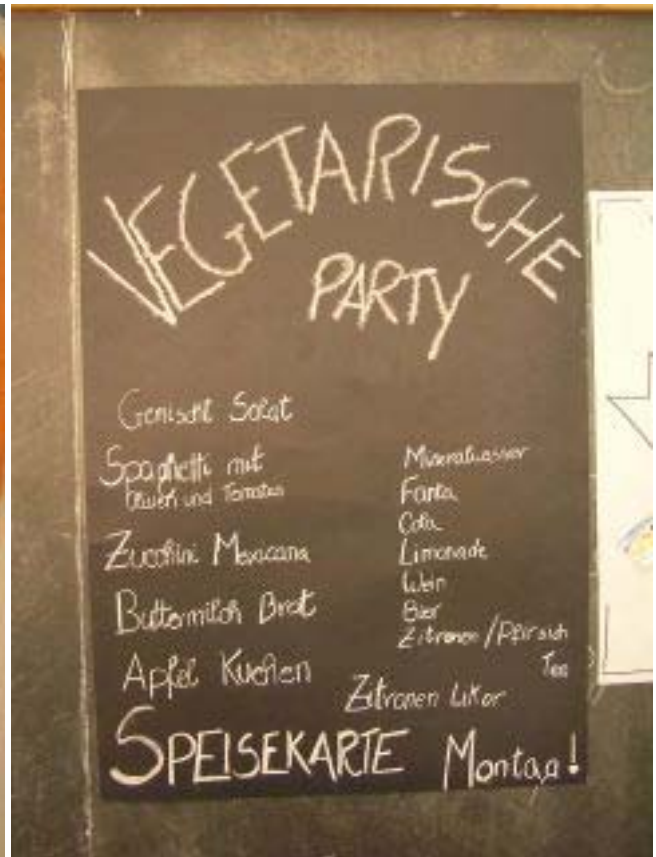 VEGETARISCHE
PARTY
Gemischt Salat
Spaghetti mit
Oliven und Tomaten
Zucchini Mexicana
Buttermilch Brot
Apfel Kuchen
Mineralwasser
Fanta
Cola
Limonade
Wein
Bier
Zitronen/Pfirsich
Tee
Zitronen Likor
SPEISEKARTE Montag!